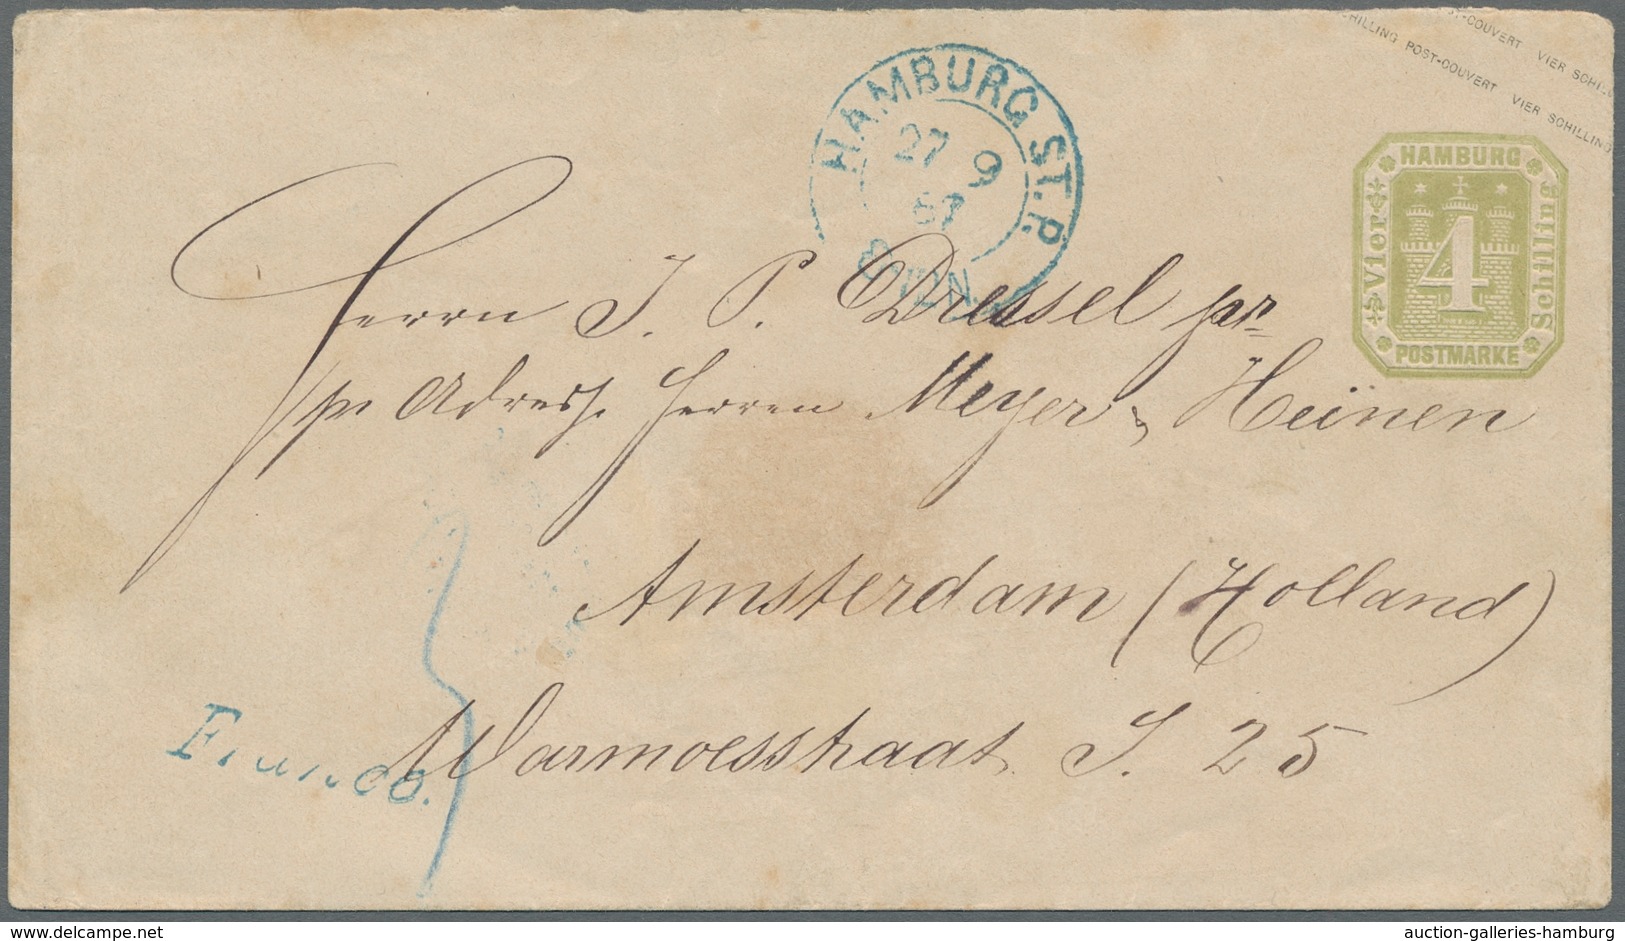 SCHILLING POST-COUVERT VIER SCHILLING
ST-COUVERT VIER SCHILL
HAMBURG ST. P.
27 9
67
HAMBURG
Vier
4
Schilling
POSTMARKE
Herrn J. P. Dressel pr
pr Adresse Herren Meyer & Heünen
Amsterdam (Holland)
Warmoesstraat J. 25
Franco.
3
delcampe.net
auction-galleries-hamburg